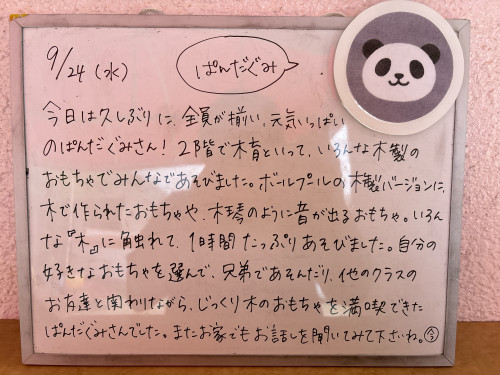 9/24（水）
ぱんだぐみ
今日は久しぶりに、全員が揃い、元気いっぱい
のぱんだぐみさん！2階で木育といって、いろんな木製の
おもちゃでみんなであそびました。ボールプールの木製バージョンに、
木で作られたおもちゃや、木琴のように音が出るおもちゃ。いろん
な『木』に触れて、1時間たっぷりあそびました。自分の
好きなおもちゃを選んで、兄弟であそんだり、他のクラスの
お友達と関わりながら、じっくり木のおもちゃを満喫できた
ぱんだぐみさんでした。またお家でもお話しを聞いてみて下さいね。今